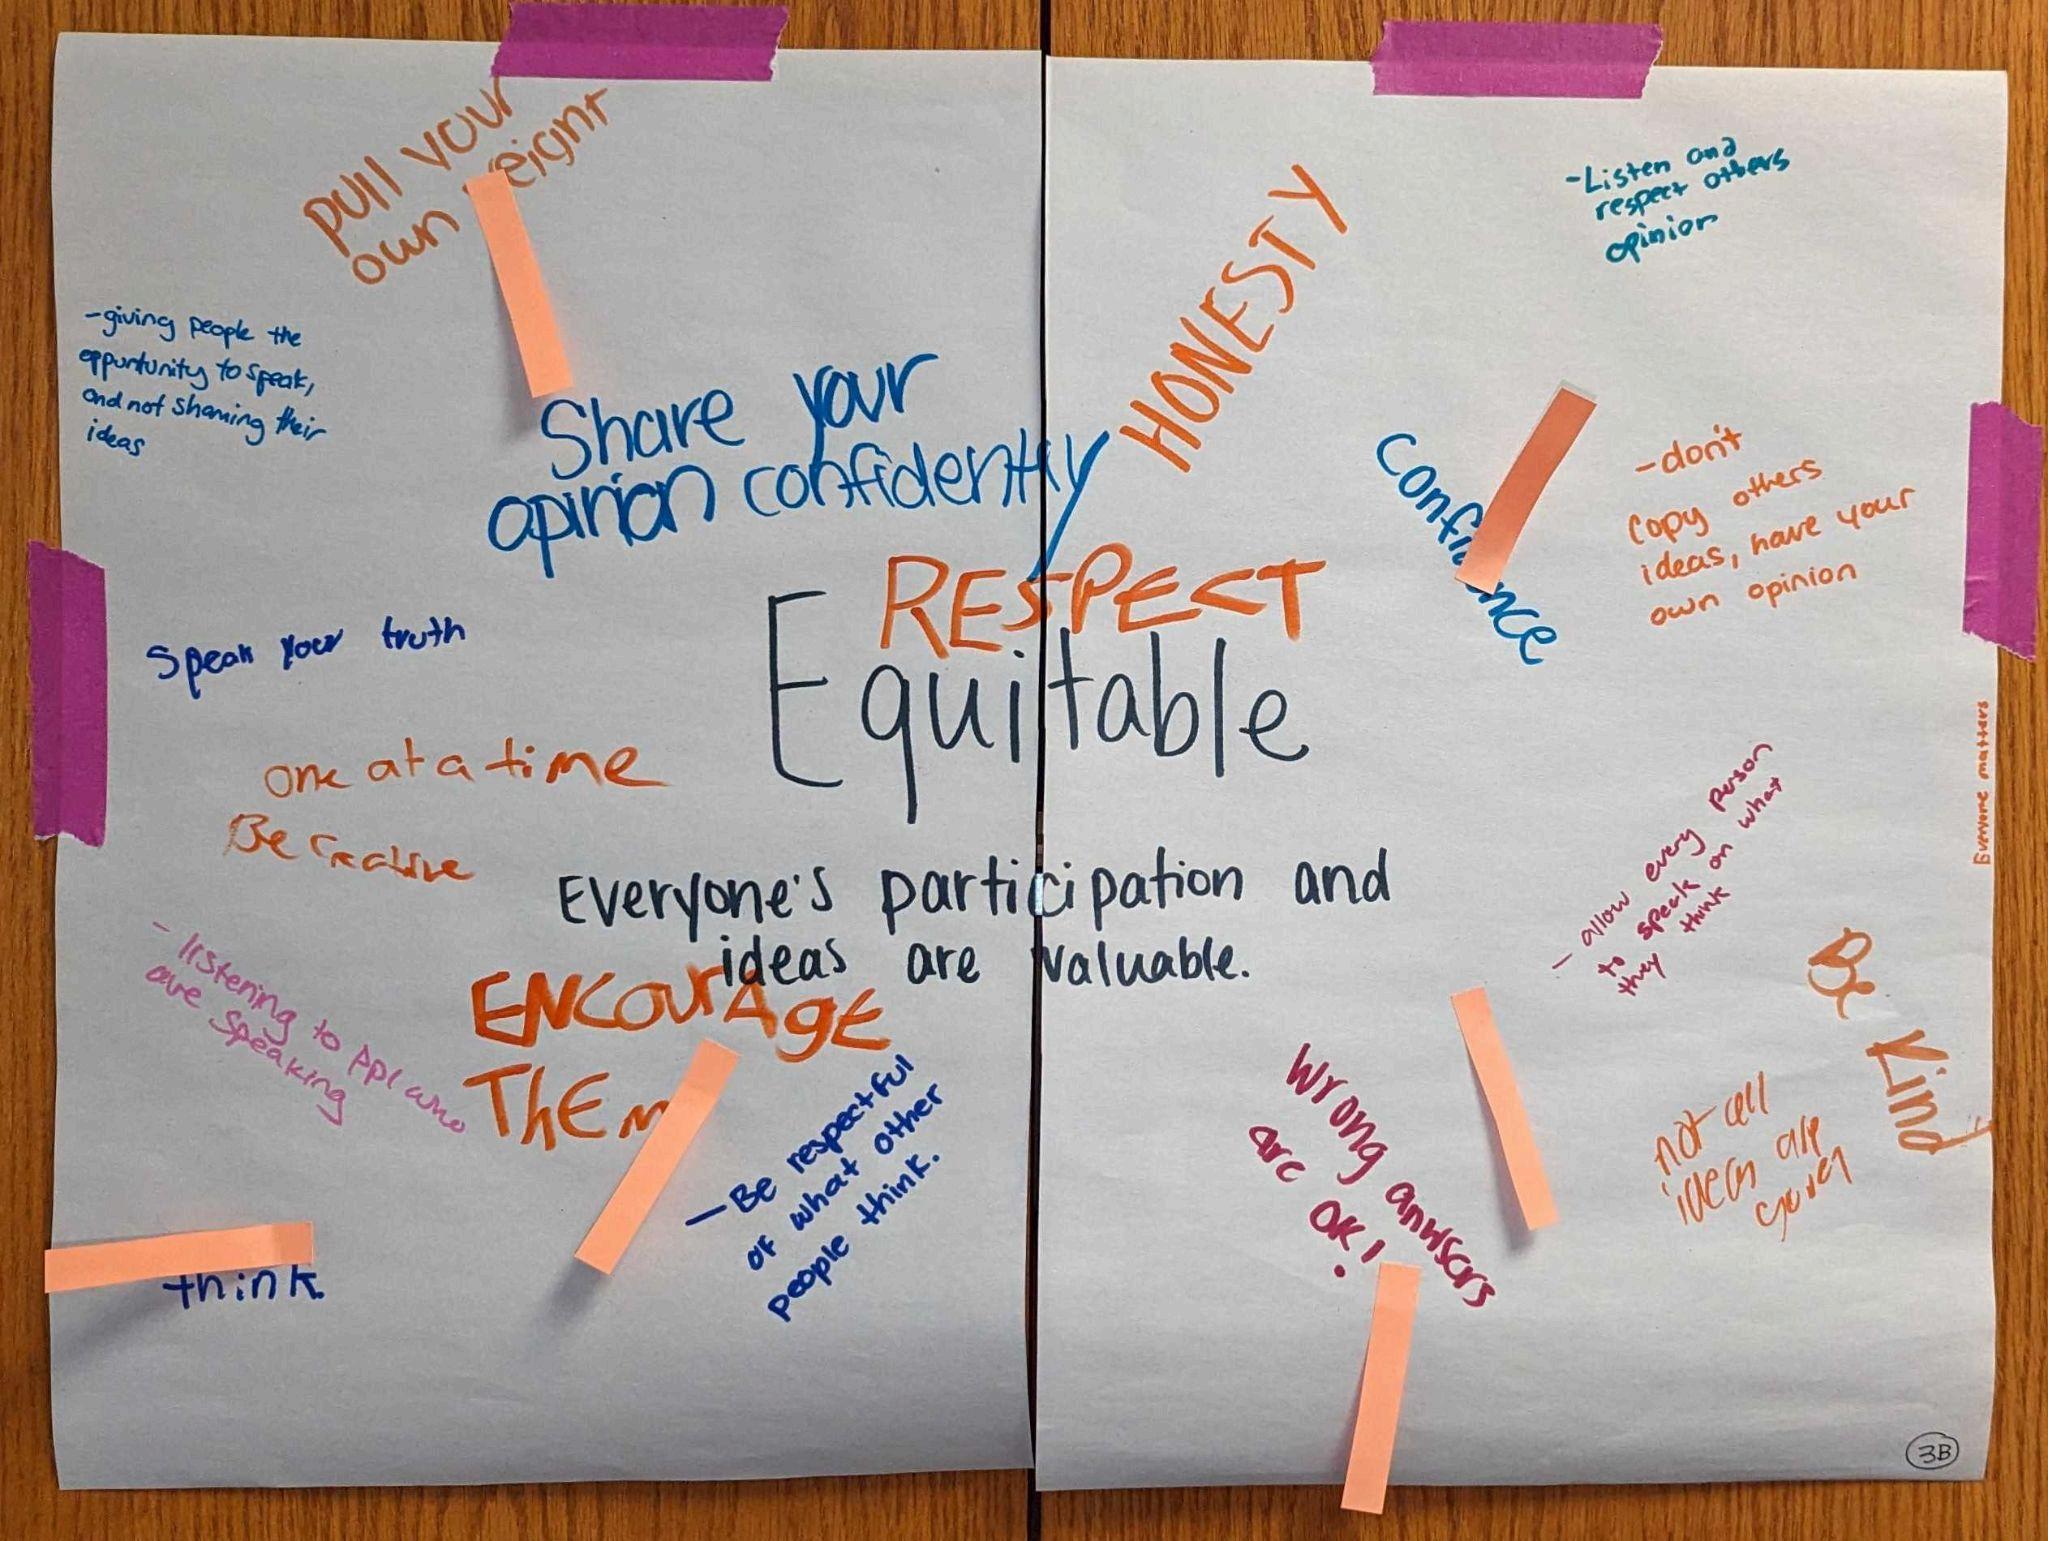 Pull your
own eight
-Listen and
respect others
opinion
HONESTY
-giving people the
oppurtunity to speak,
and not shaming their
ideas
Share your
opinion confidently
Confi nce
-don't
copy others
ideas, have your
own opinion
RESPECT
Equitable
Speak your truth
one at a time
Be creative
Everyone matters
Everyone's participation and
ideas are valuable.
- allow every person
to speak on what
they think
Be Kind
- listening to ppl who
are speaking
ENCOURAgE
ThEm
- Be respectful
of what other
people think.
Wrong anwsers
are OK!
not all
ideas are
good
think.
3B